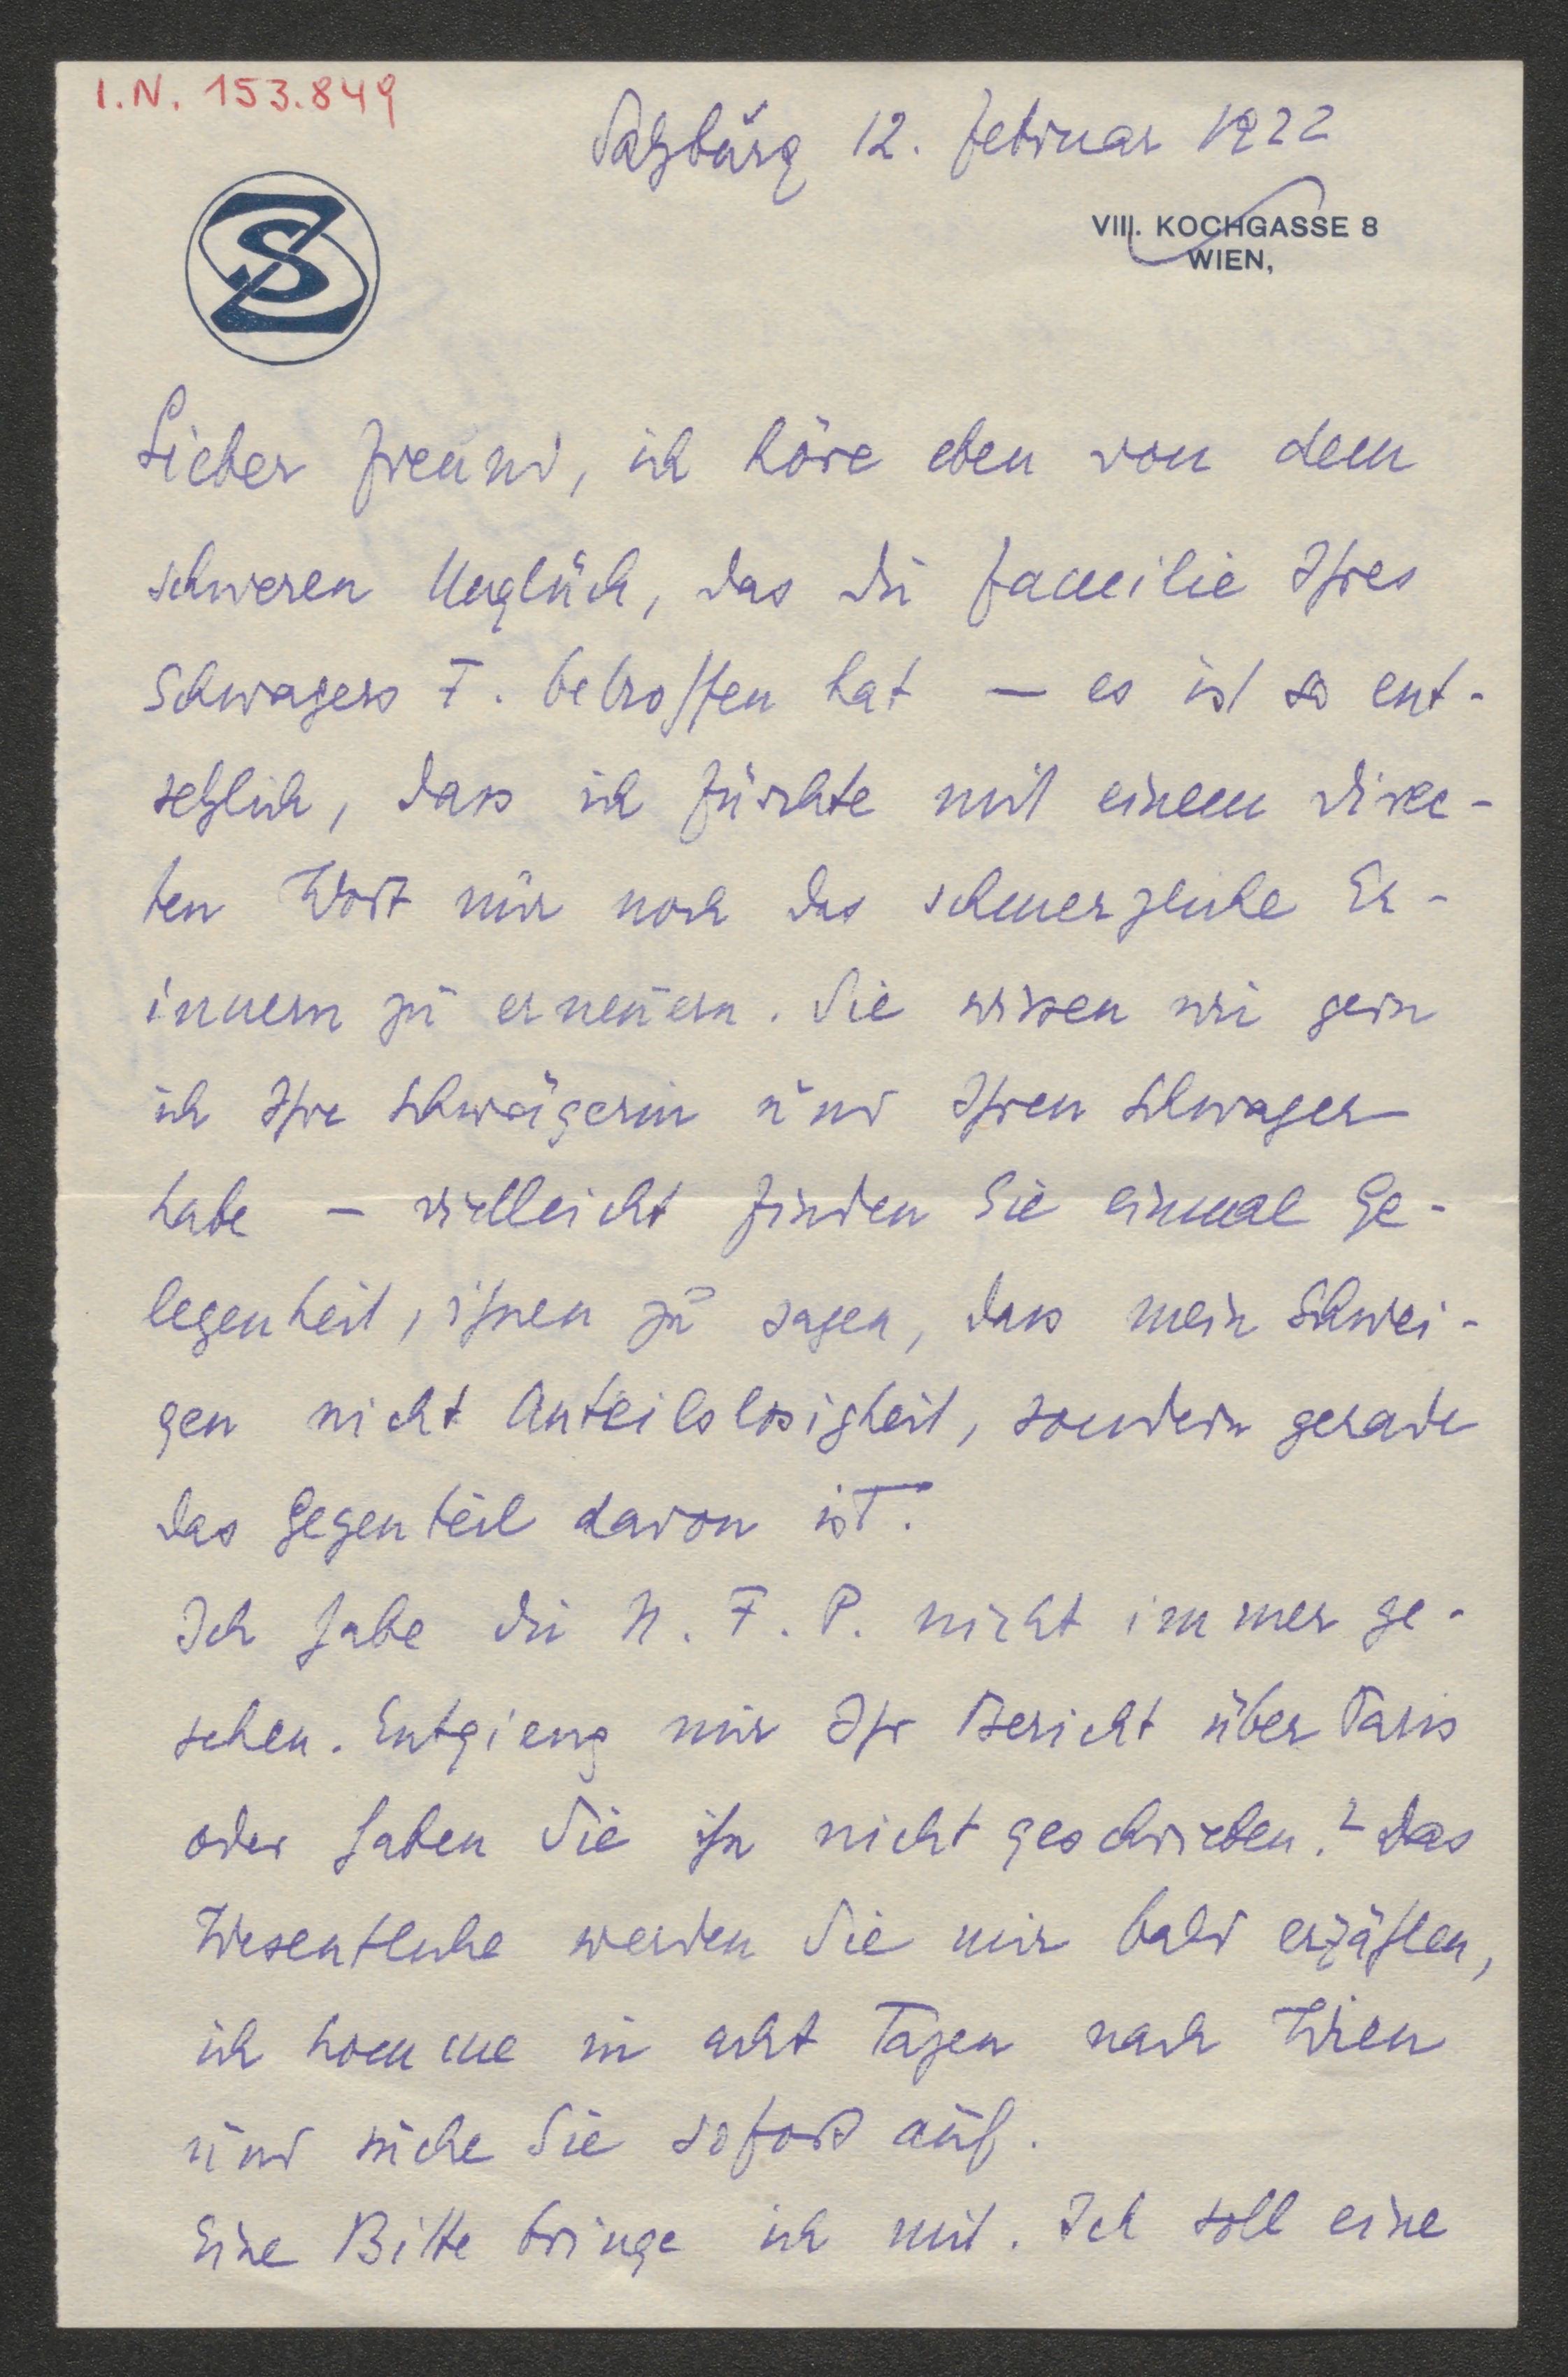 I.N. 153.849
Salzburg 12. Februar 1922
SZ
VIII. KOCHGASSE 8
WIEN,
Lieber Freund, ich höre eben von dem
schweren Unglück, das die Familie Ihres
Schwagers F. betroffen hat — es ist so ent-
setzlich, dass ich fürchte mit einem direc-
ten Wort nur noch das schmerzliche Er-
innern zu erneuern. Sie wissen wie gern
ich Ihre Schwägerin und Ihren Schwager
habe — vielleicht finden Sie einmal Ge-
legenheit, ihnen zu sagen, dass mein Schwei-
gen nicht Anteilslosigkeit, sondern gerade
das Gegenteil davon ist.
Ich habe die N. F. P. nicht immer ge-
sehen. Entgieng mir Ihr Bericht über Paris
oder haben Sie ihn nicht geschrieben? Das
Wesentliche werden Sie mir bald erzählen,
ich komme in acht Tagen nach Wien
und suche Sie sofort auf.
Eine Bitte bringe ich mit. Ich soll eine